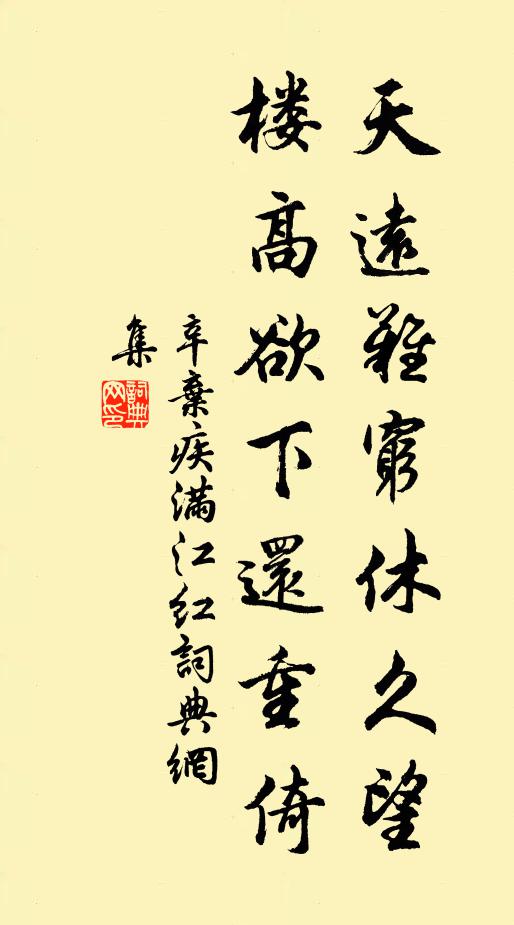 天遠難窮休久望
楼高欲下還重倚
辛棄疾满江红詞典網
集
詞典
网印